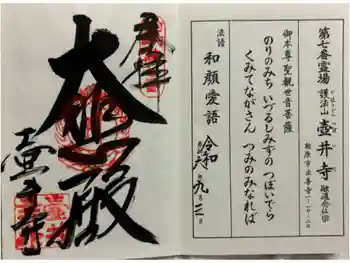 第七番霊場 護法山 壺井寺 融通念仏宗
柏原市法善寺一-一〇-二〇
御本尊 聖観世音菩薩
のりのみち いづるしみずの つぼいでら
くみてながさん つみのみなれば
法語 和顔愛語
令和 年九月二日
奉拝
大悲殿
壺井寺